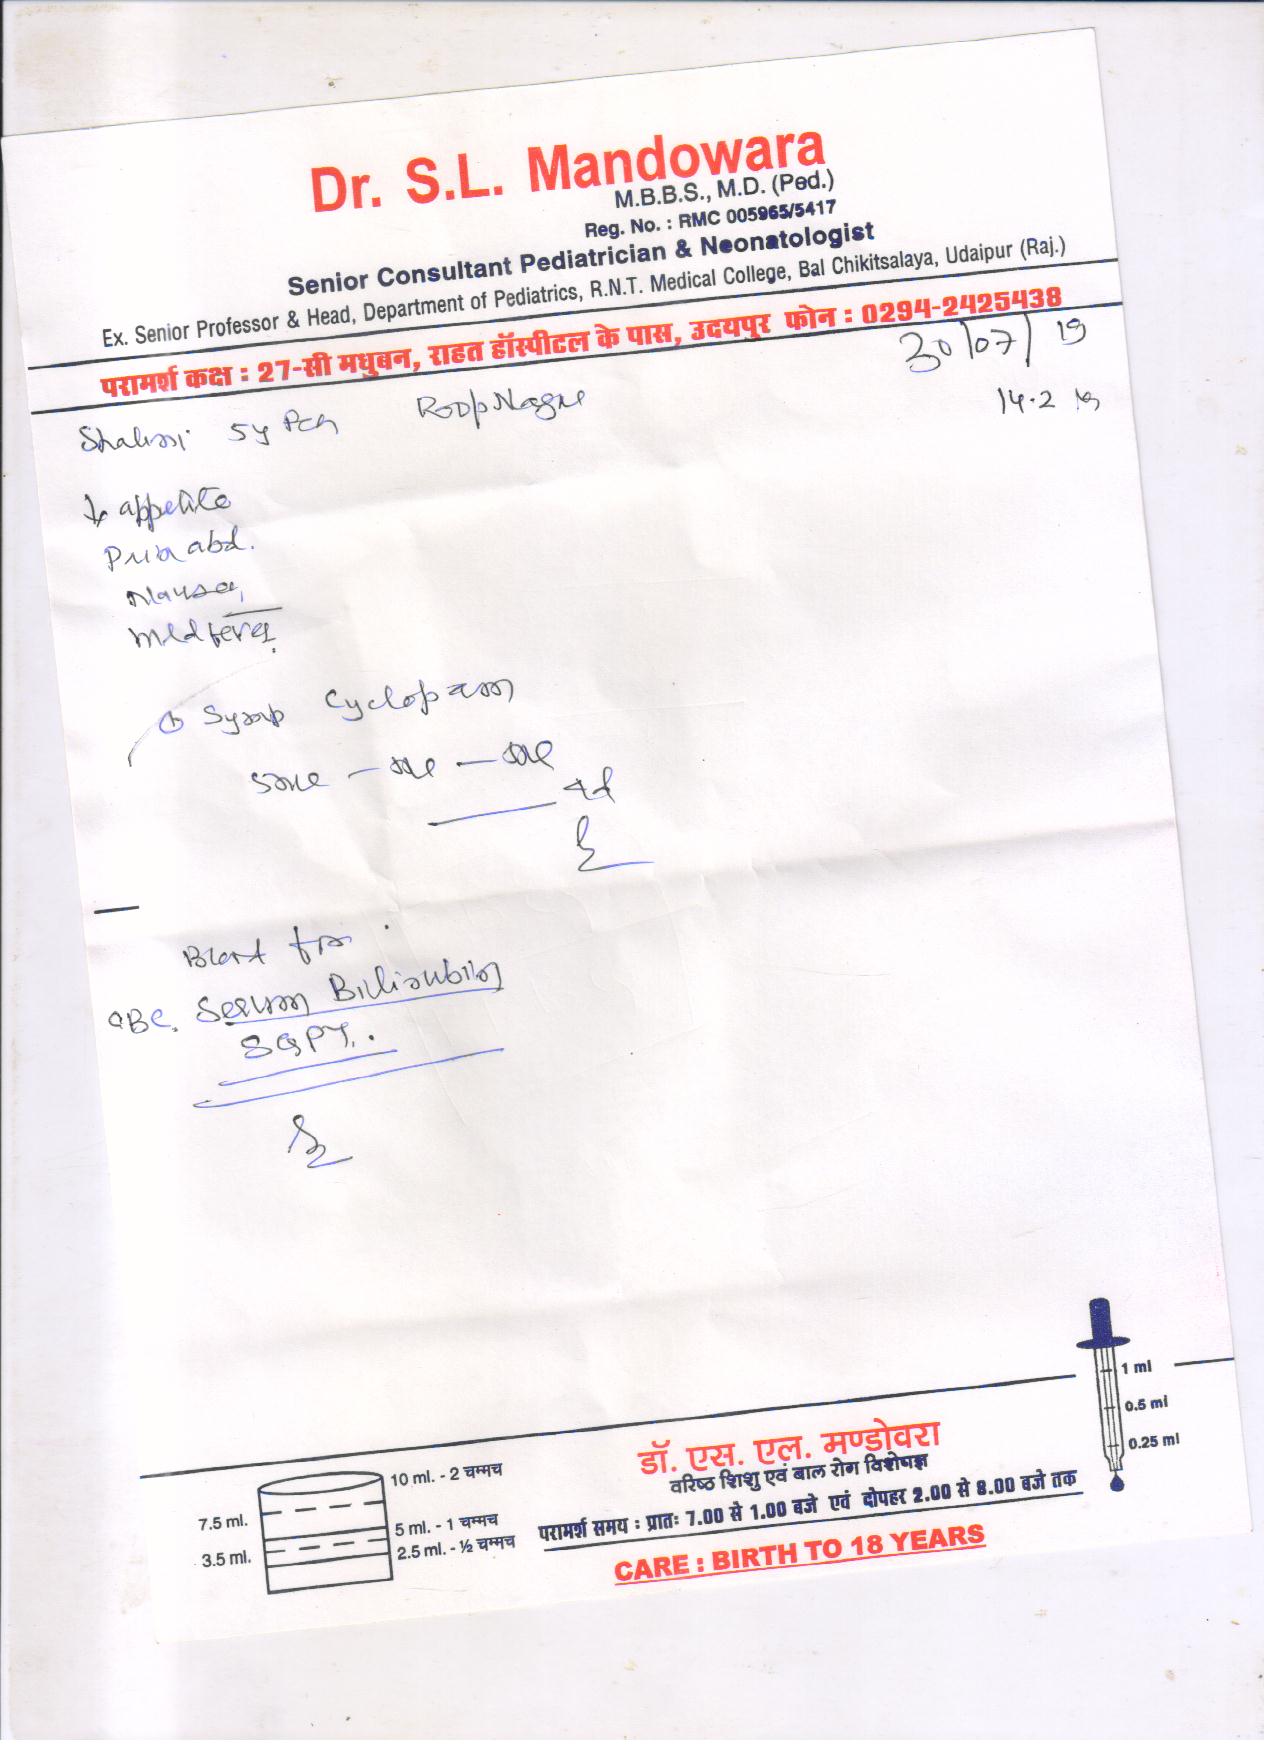 Dr. S.L. Mandowara
M.B.B.S., M.D. (Ped.)
Reg. No. : RMC 005965/5417
Senior Consultant Pediatrician & Neonatologist
Ex. Senior Professor & Head, Department of Pediatrics, R.N.T. Medical College, Bal Chikitsalaya, Udaipur (Raj.)
परामर्श कक्ष : 27-सी मधुबन, राहत हॉस्पीटल के पास, उदयपुर फोन : 0294-2425438
30/07/19
5y RoopNagar 14.2
↓ appetite
Pain abd.
Nausea,
mild fever.
① Syrup Cyclopam
5ml
4d
Blood for
CBC. Serum Bilirubin
SGPT.
1 ml
0.5 ml
0.25 ml
10 ml. - 2 चम्मच
7.5 ml.
5 ml. - 1 चम्मच
3.5 ml.
2.5 ml. - ½ चम्मच
डॉ. एस. एल. मण्डोवरा
वरिष्ठ शिशु एवं बाल रोग विशेषज्ञ
परामर्श समय : प्रातः 7.00 से 1.00 बजे एवं दोपहर 2.00 से 8.00 बजे तक
CARE : BIRTH TO 18 YEARS